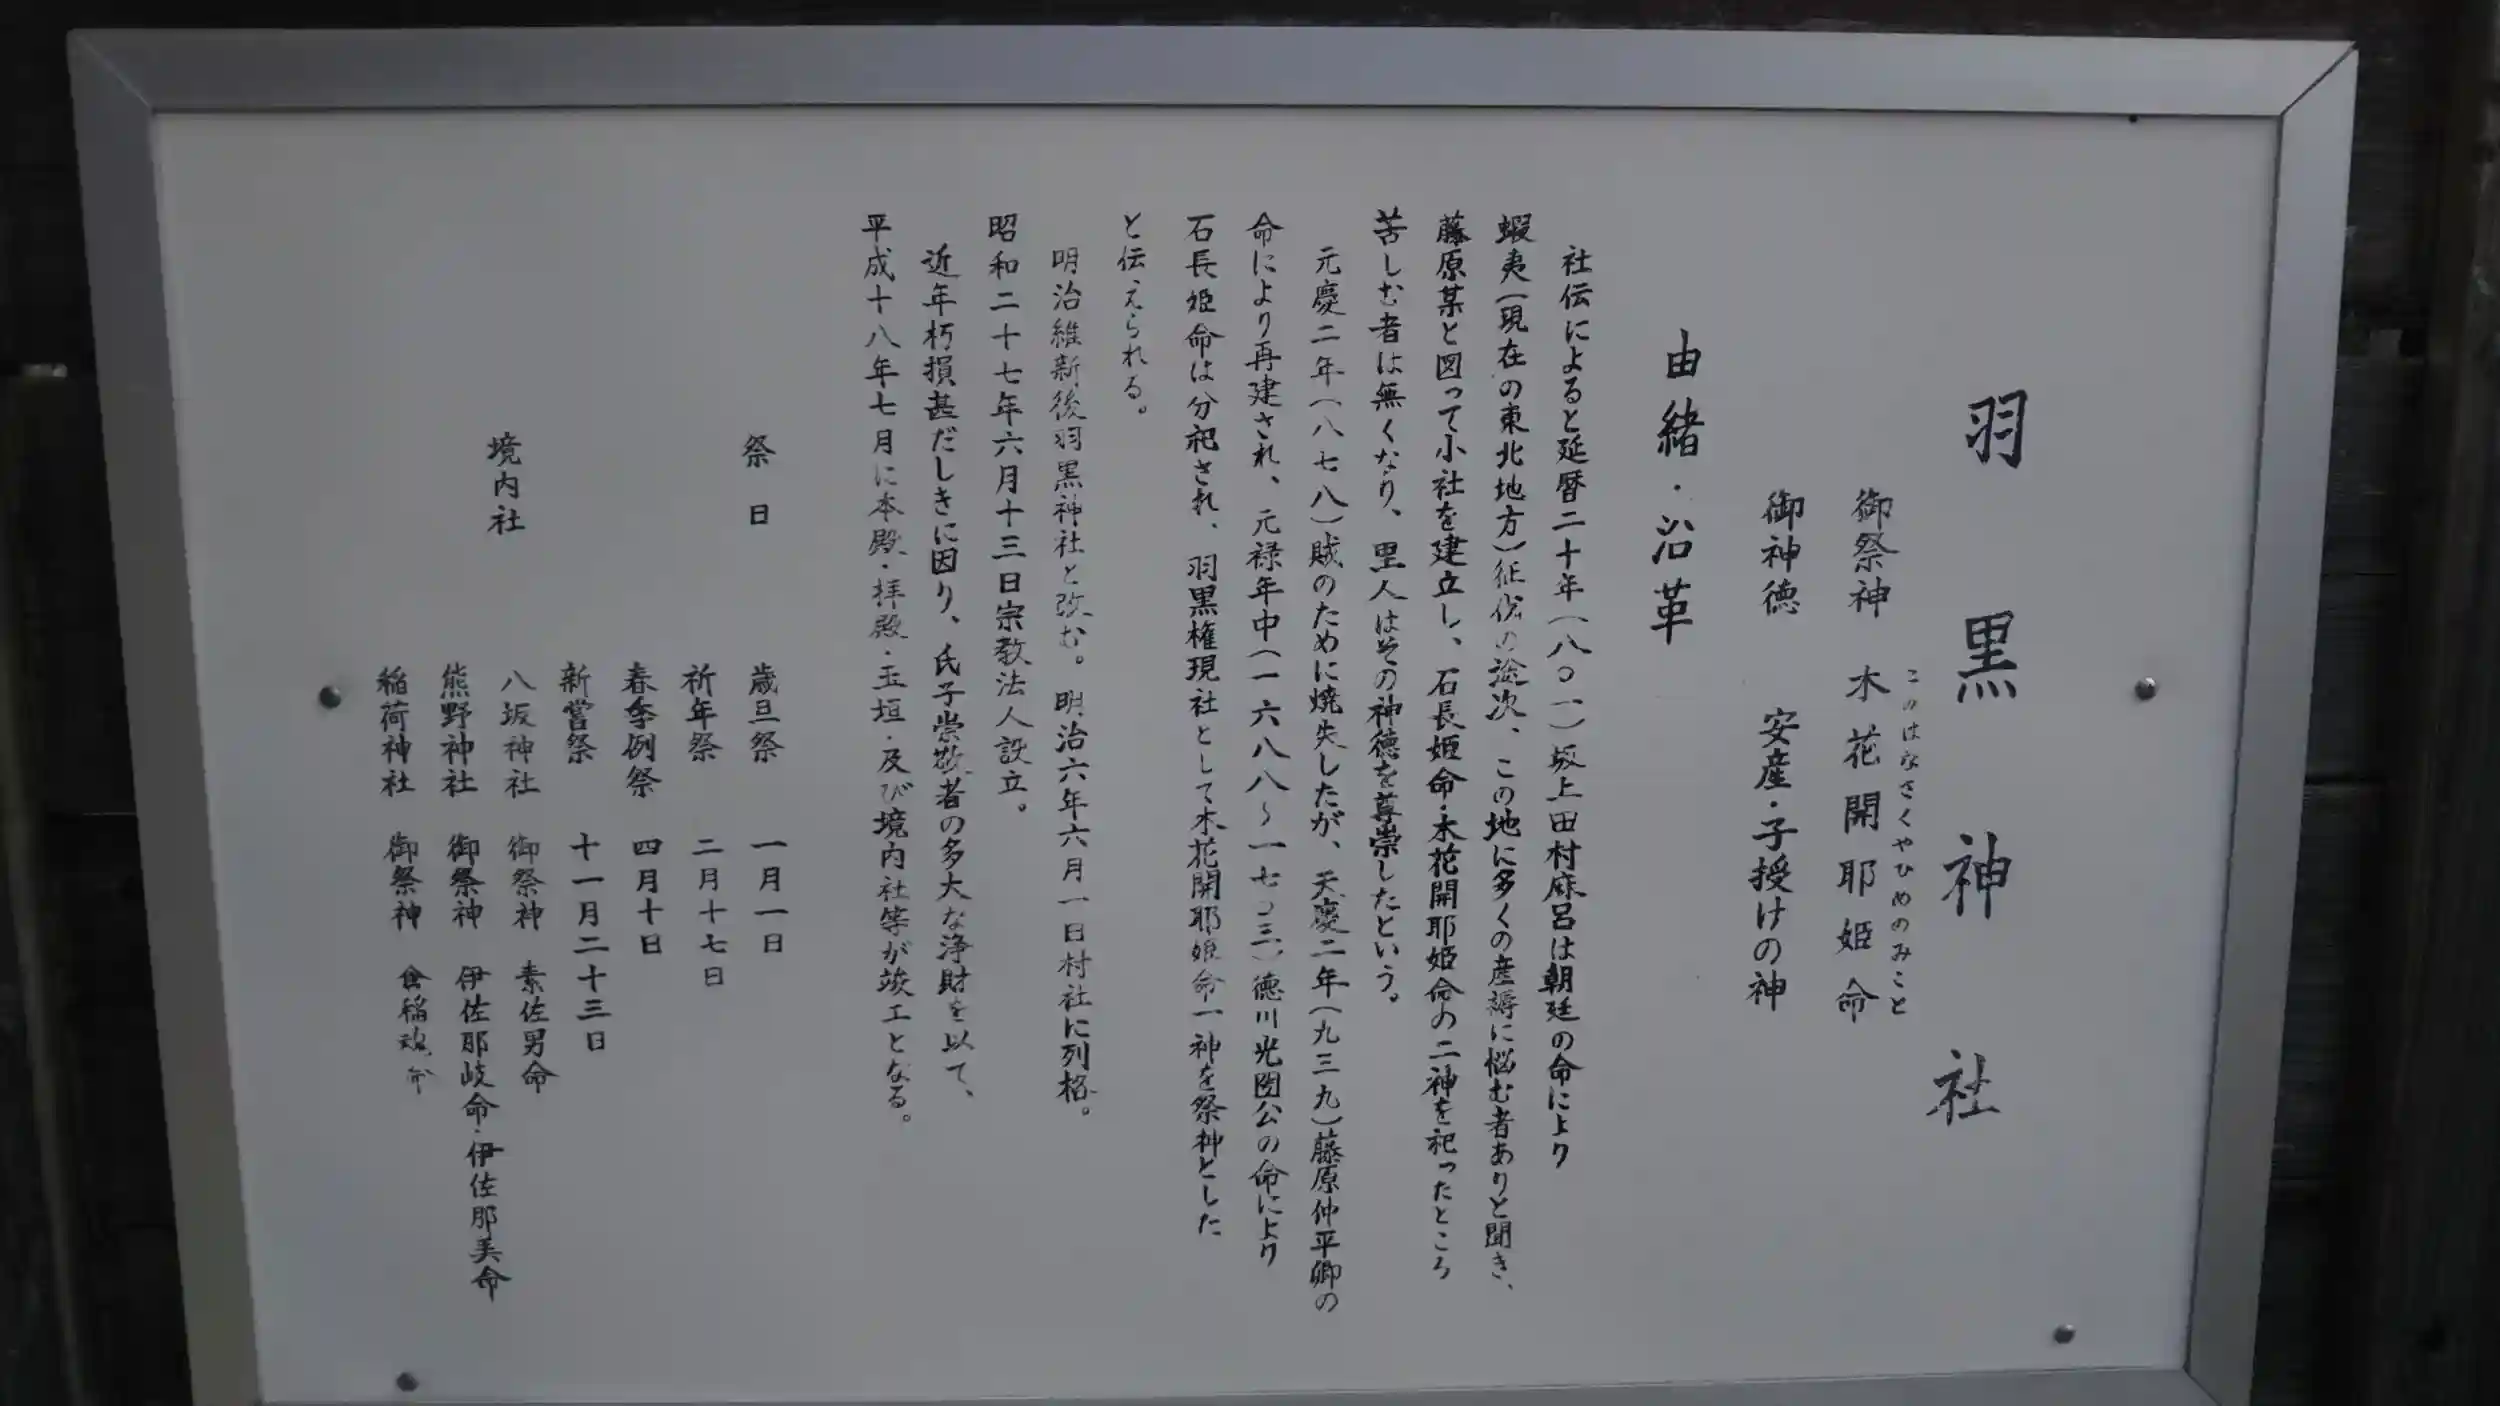 羽黒神社
御祭神 木花開耶姫命
このはなさくやひめのみこと
御神徳 安産・子授けの神
由緒・沿革
社伝によると延暦二十年(八〇一)坂上田村麻呂は朝廷の命により
蝦夷(現在の東北地方)征伐の途次、この地に多くの産褥に悩む者ありと聞き、
藤原某と図って小社を建立し、石長姫命・木花開耶姫命の二神を祀ったところ
苦しむ者は無くなり、里人はその神徳を尊崇したという。
元慶二年(八七八)賊のために焼失したが、天慶二年(九三九)藤原仲平卿の
命により再建され、元禄年中(一六八八~一七〇三)徳川光圀公の命により
石長姫命は分祀され、羽黒権現社として木花開耶姫命一神を祭神とした
と伝えられる。
明治維新後羽黒神社と改む。明治六年六月一日村社に列格。
昭和二十七年六月十三日宗教法人設立。
近年朽損甚だしきに因り、氏子崇敬者の多大な浄財を以て、
平成十八年七月に本殿・拝殿・玉垣・及び境内社等が竣工となる。
祭日 歳旦祭 一月一日
祈年祭 二月十七日
春季例祭 四月十日
新嘗祭 十一月二十三日
境内社 八坂神社 御祭神 素佐男命
熊野神社 御祭神 伊佐那岐命・伊佐那美命
稲荷神社 御祭神 倉稲魂命